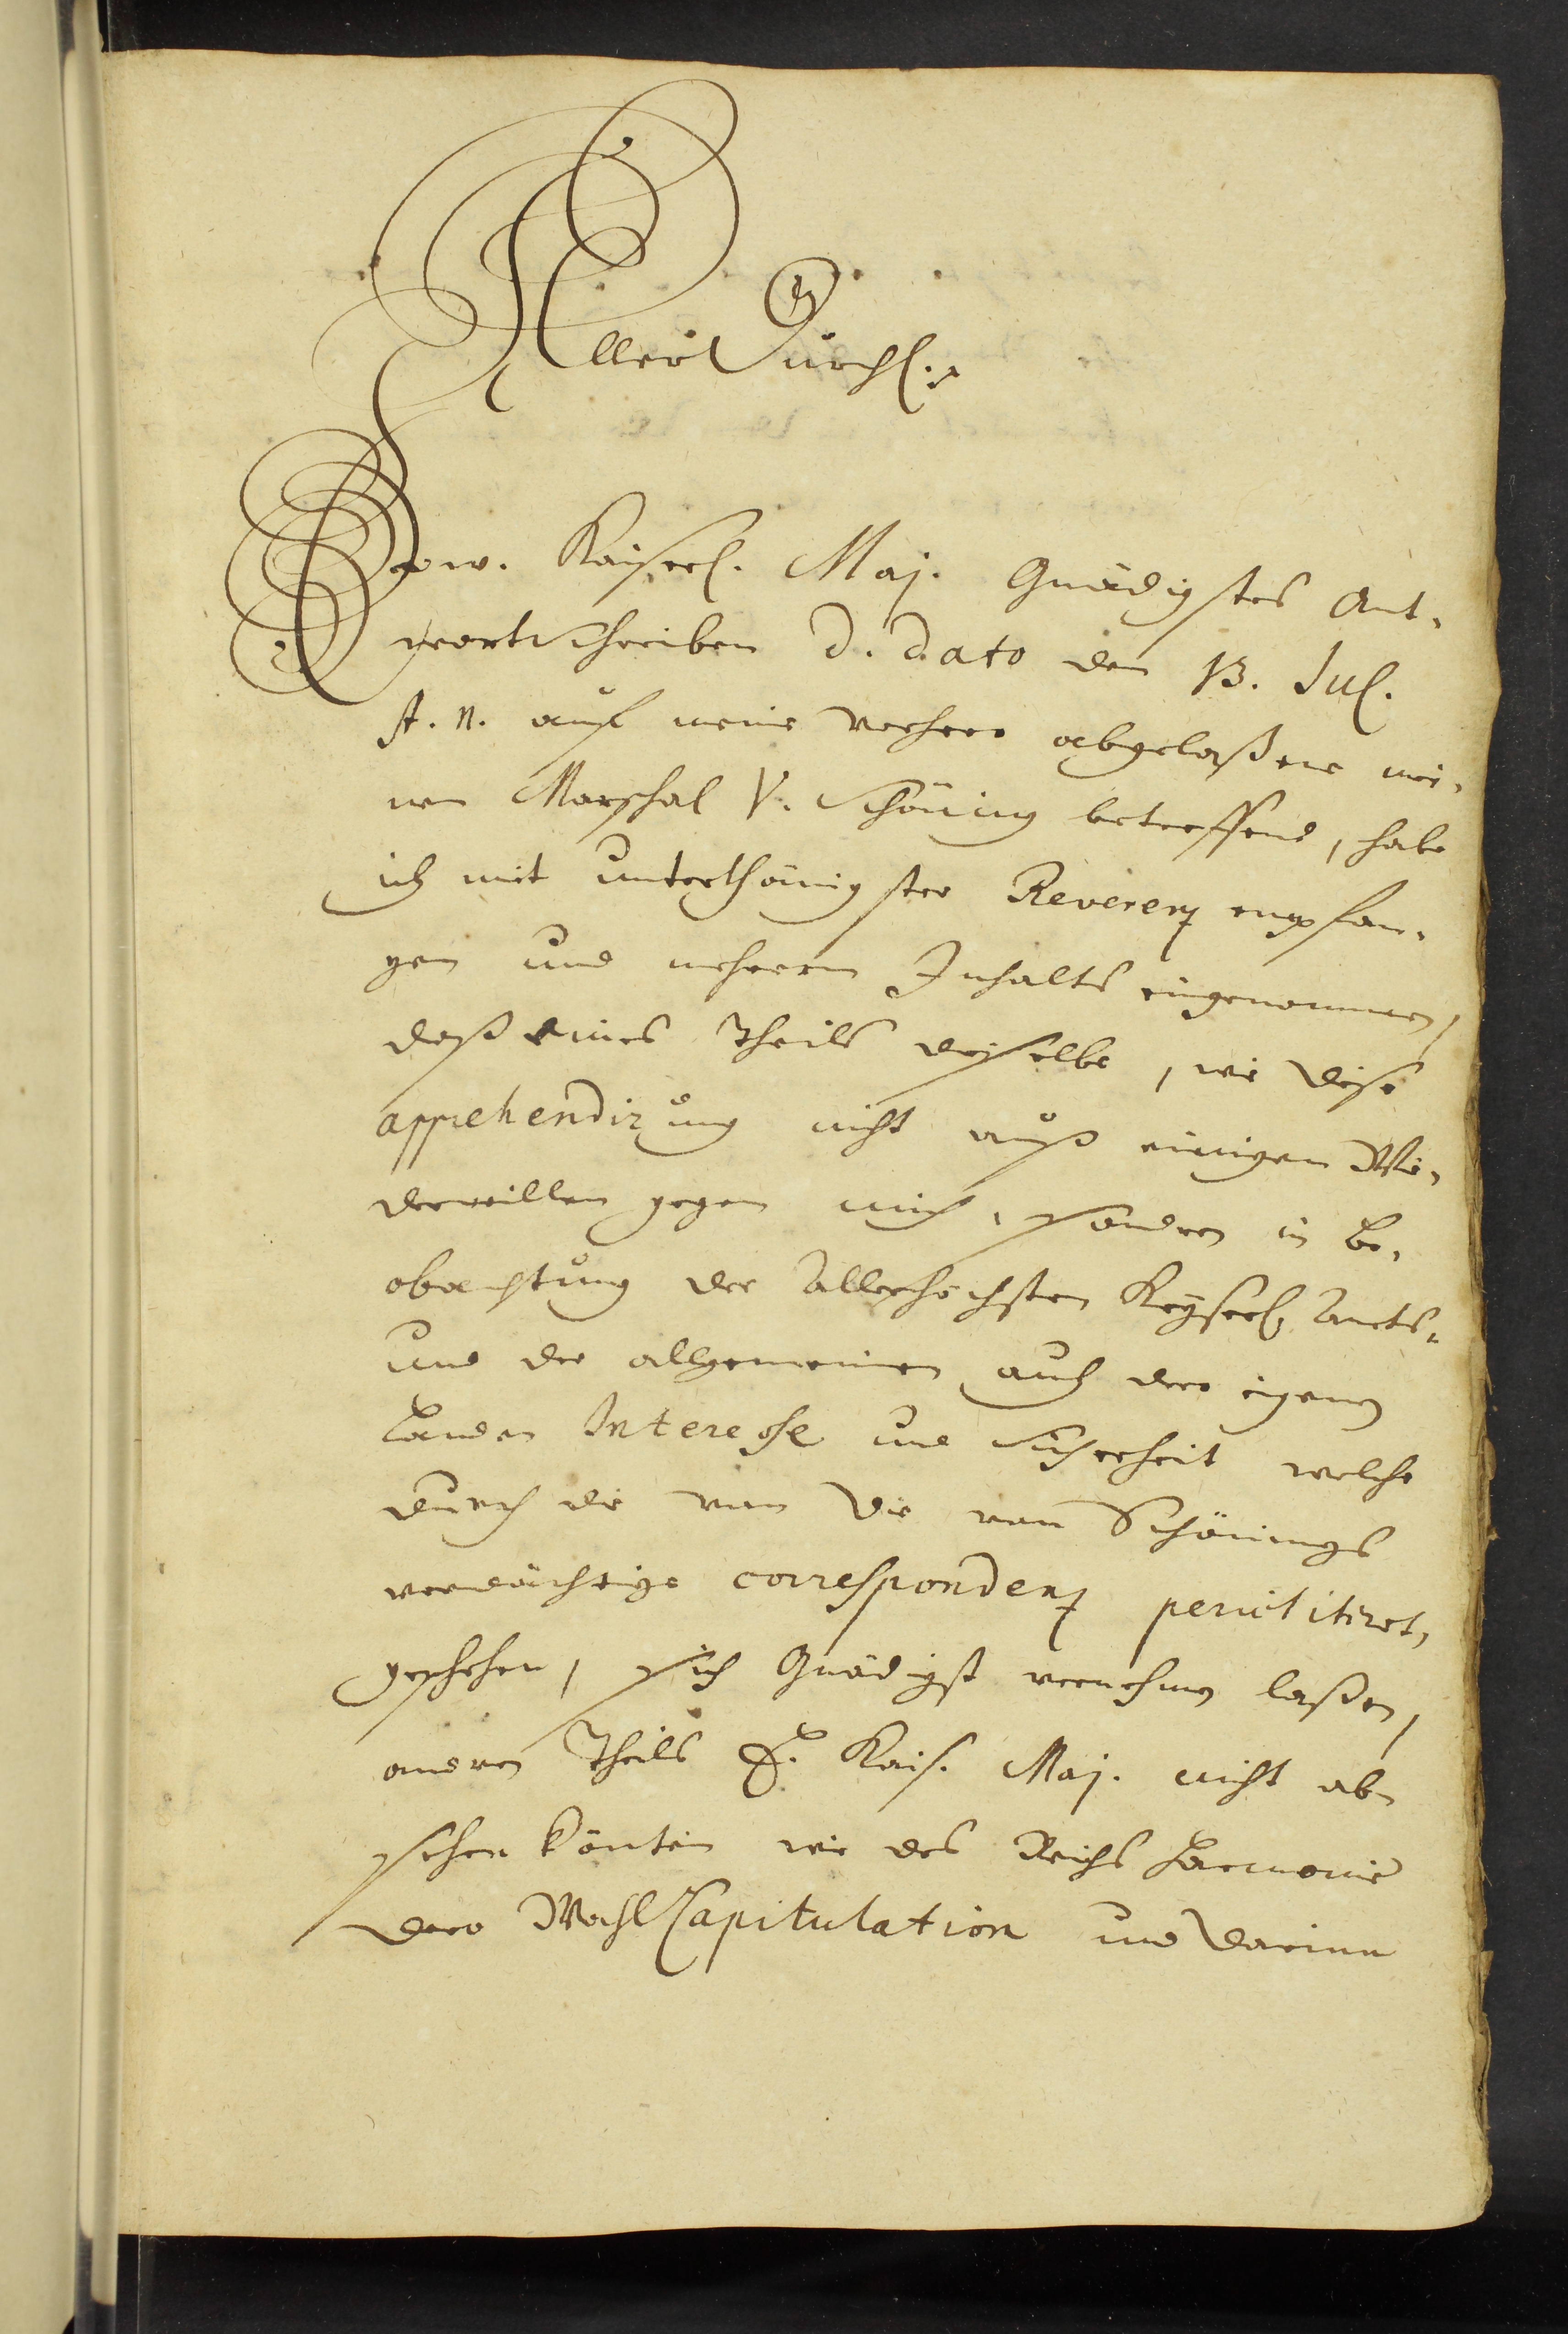 AllerDurchl:
Ew. Kaiserl. Maj. Gnädigstes Ant-
wortschreiben d. dato den 13. Jul.
st. n. auf meine vorhero abgelaßene mei-
nen Marschal V. Schöning betreffend, habe
ich mit unterthänigster Reverenz empfan-
gen und mehrern Inhalts eingenommen,
daß eines Theils dieselbe, wie diese
apprehendirung nicht auß einigen Wie-
derwillen gegen mich, sondern in be-
obachtung der Allerhöchsten Keyserl. Ambts-
und der allgemeinen auch dero eigenen
Landen Interesse und Sicherheit welche
durch die von die von Schönings
verdächtige correspondenz periclitiret,
geschehen, sich Gnädigst vernehmen laßen,
andern Theils E. Kais. Maj. nicht ab
sehen könten wie des Reichs Harmonie
dero WahlCapitulation und darinn